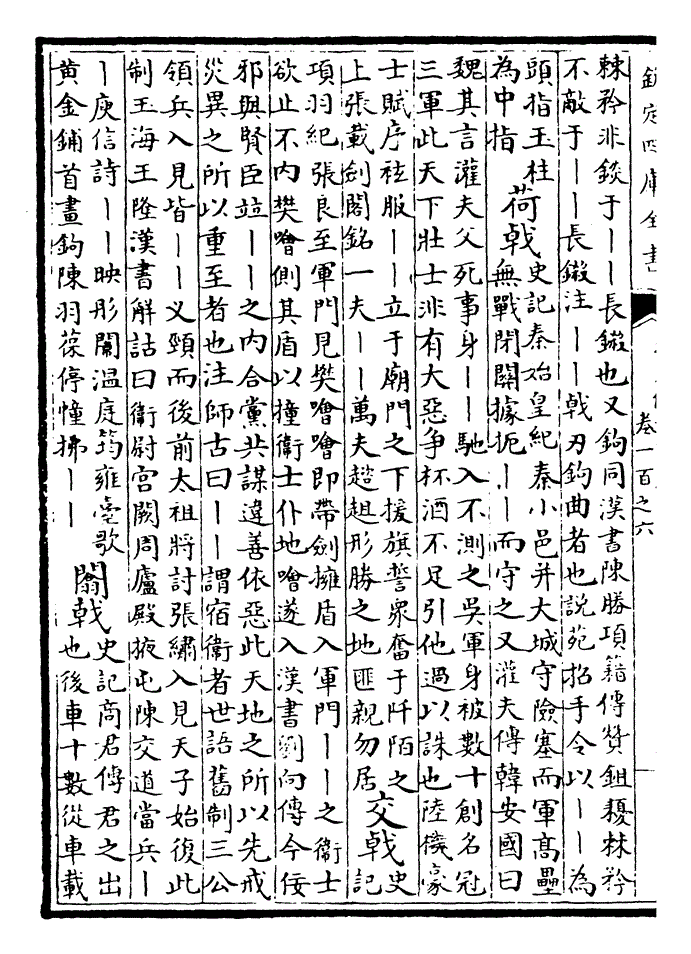 欽定四庫全書
卷一百之六
棘矜非錟于丨丨長鎩也又鉤同漢書陳勝項籍傳贊鉏耰棘矜
不敵于丨丨長鎩注丨丨戟刃鉤曲者也説苑招手令以丨丨為
頭指玉柱
為中指
荷戟
史記秦始皇紀秦小邑并大城守險塞而軍髙壘
無戰閉關據扼丨丨而守之又灌夫傳韓安國曰
魏其言灌夫父死事身丨丨馳入不測之吳軍身被數十創名冠
三軍此天下壯士非有大惡争杯酒不足引他過以誅也陸機豪
士賦序袨服丨丨立于廟門之下援旗誓衆奮于阡陌之
上張載劍閣銘一夫丨丨萬夫趑趄形勝之地匪親勿居
交戟
史
記
項羽紀張良至軍門見樊噲噲即帶劍擁盾入軍門丨丨之衛士
欲止不内樊噲側其盾以撞衛士仆地噲遂入漢書劉向傳今佞
邪與賢臣竝丨丨之内合黨共謀違善依惡此天地之所以先戒
災異之所以重至者也注師古曰丨丨謂宿衛者世語舊制三公
領兵入見皆丨丨乂頸而後前太祖將討張繡入見天子始復此
制玉海王隆漢書解詁曰衛尉宫闕周廬殿掖屯陳交道當兵丨
丨庾信詩丨丨映彤闈温庭筠雍臺歌
黄金鋪首畫鉤陳羽葆停幢拂丨丨
闟戟
史記商君傳君之出
也後車十數從車載